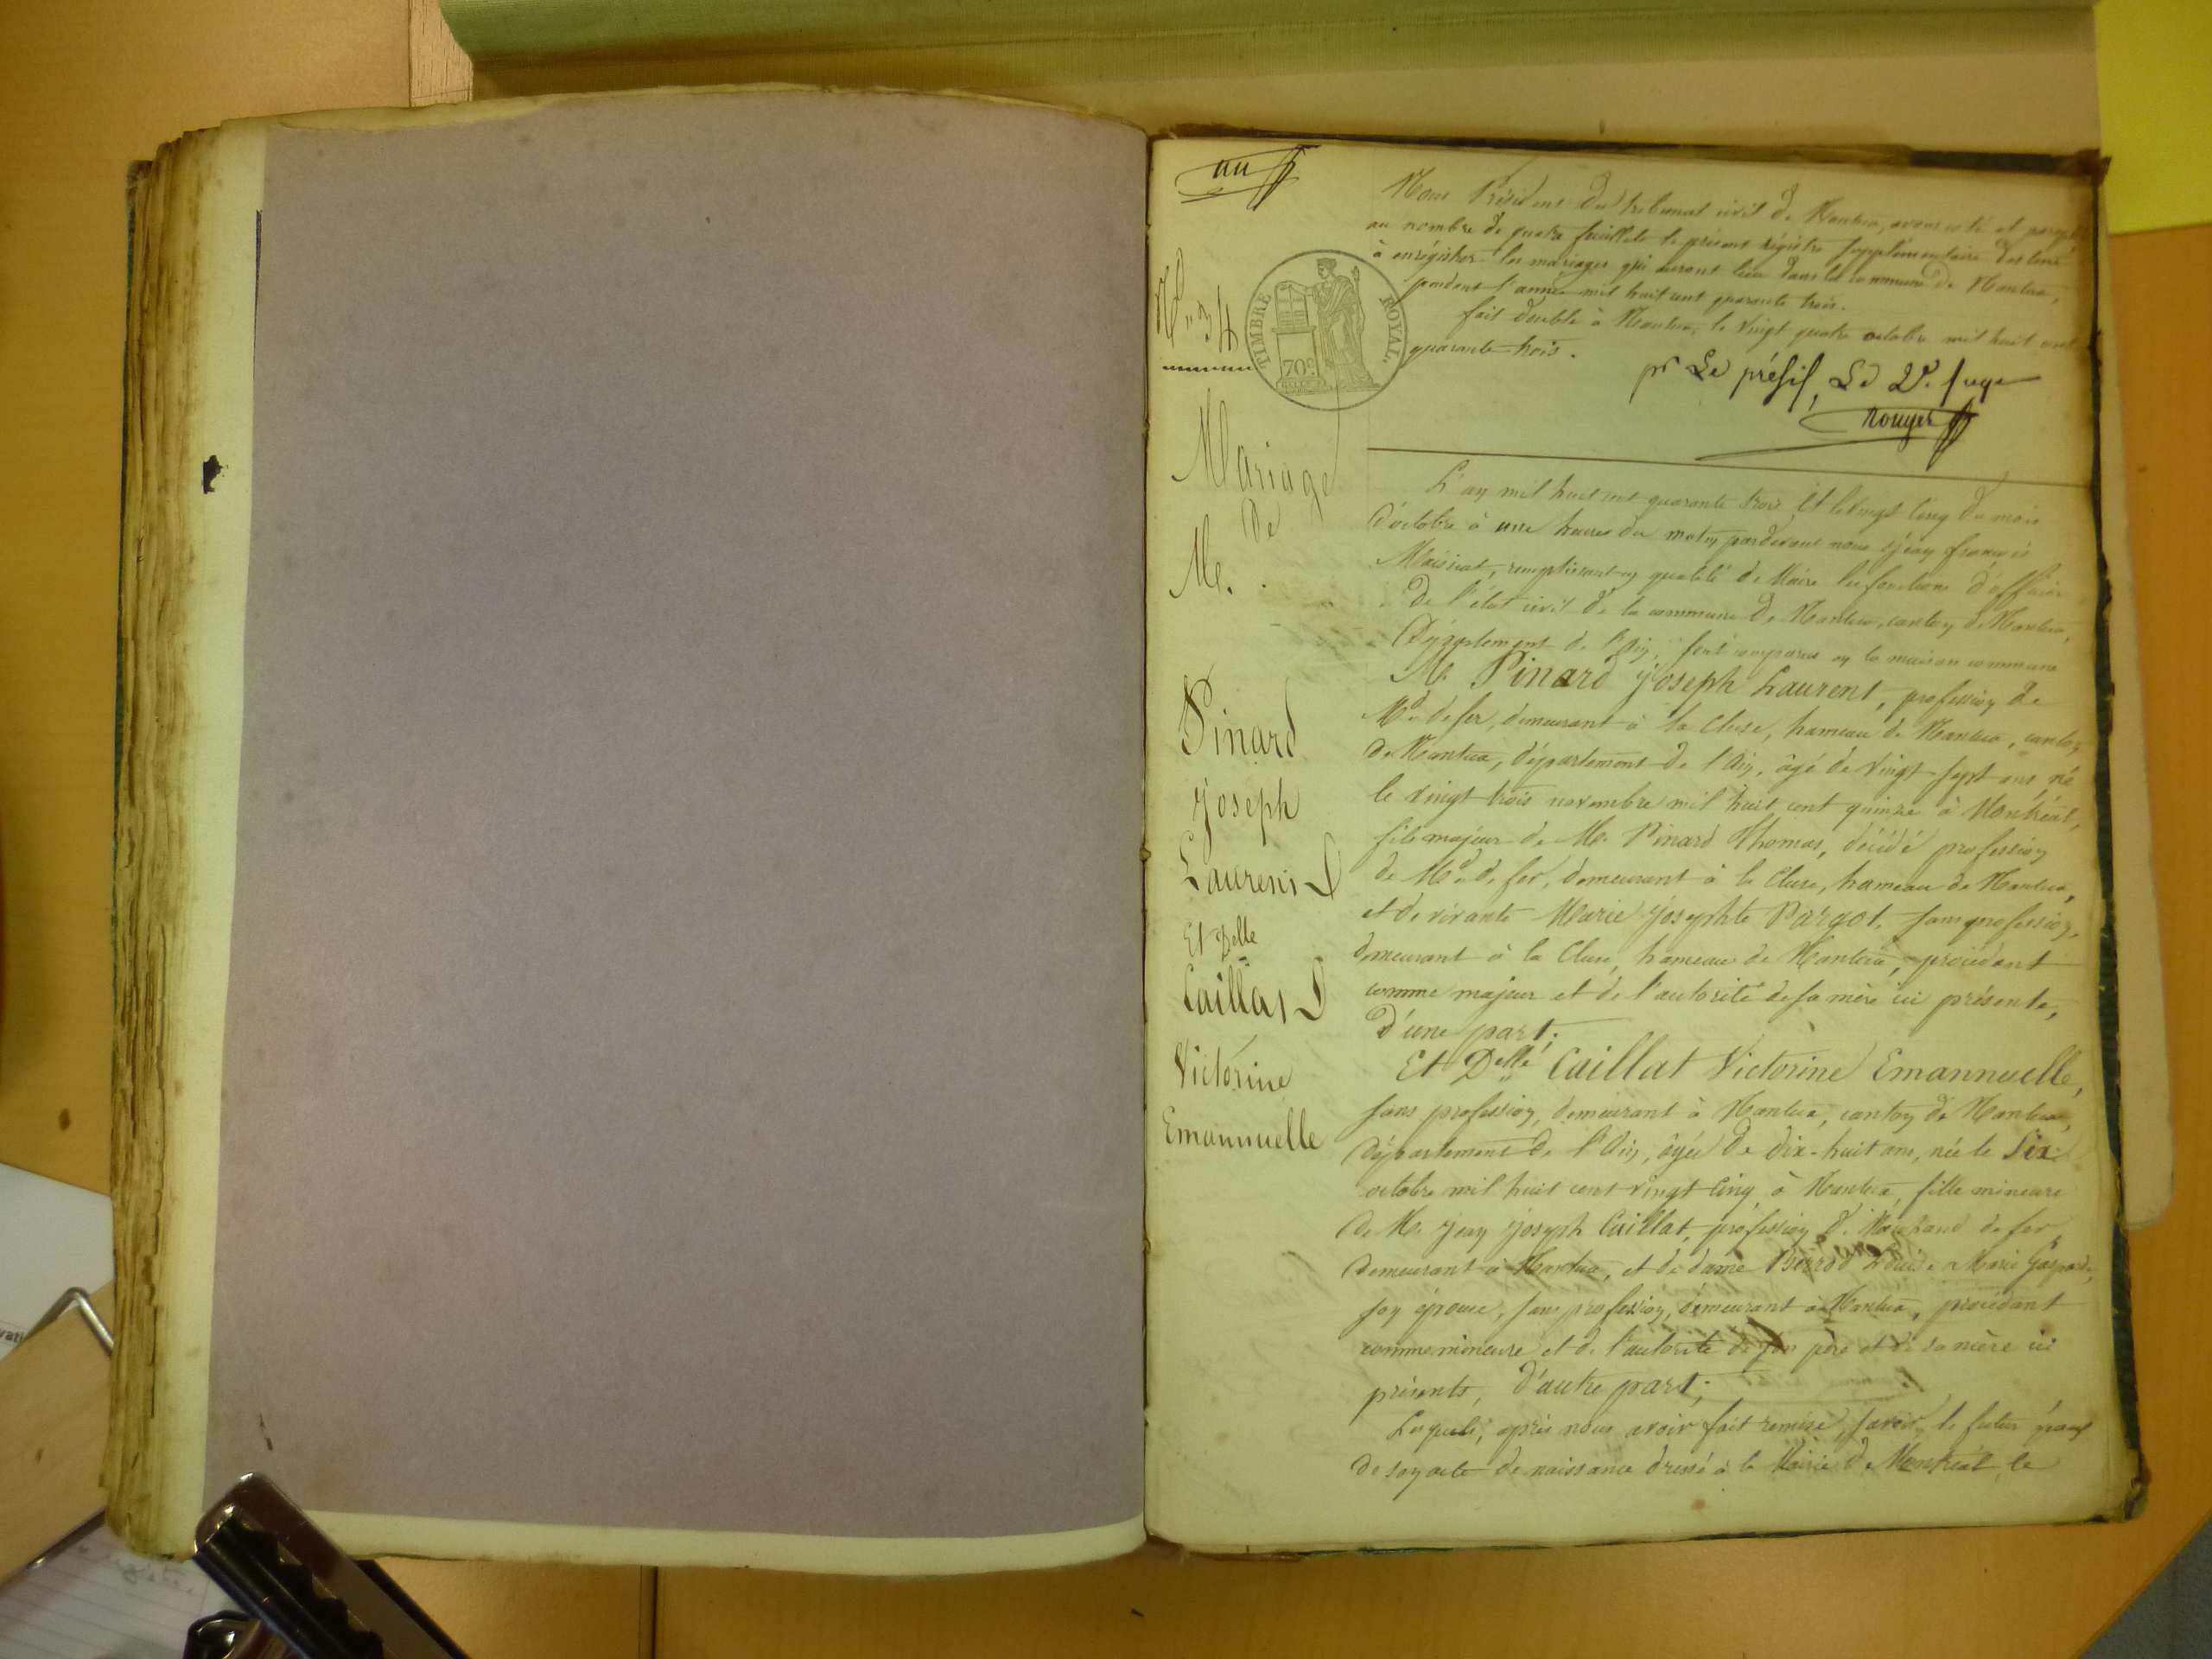 un
Nous Président du tribunal civil de Nantua, avons coté et paraphé
au nombre de quatre feuillets le présent régistre supplémentaire destiné
à enrégistrer les mariages qui auront lieu dans la commune de Nantua,
pendant l'année mil huit cent quarante trois.
fait double à Nantua, le vingt quatre octobre mil huit cent
quarante trois.
pr Le présid, Le Ve. Juge
Rouyer
N° 34
TIMBRE ROYAL.
70c
Mariage
de
Mr.
Pinard
Joseph
Laurent
Et Delle
Caillat
Victorine
Emannuelle
L'an mil huit cent quarante trois Et le vingt cinq du mois
d'octobre à une heures du matin pardevant nous Jean françois
Maissiat, remplissant en qualité de Maire les fonctions d'officier
de l'état civil de la commune de Nantua, canton de Nantua,
Département de l'Ain, sont comparus en la maison commune
Mr. Pinard Joseph Laurent, profession de
Md. de fer, demeurant à la Cluse, hameau de Nantua, canton
de Nantua, département de l'Ain, âgé de vingt-sept ans né
le vingt trois novembre mil huit cent quinze à Montréal,
fils majeur de Mr. Pinard Thomas, décédé profession
de Md. de fer, demeurant à la Cluse, hameau de Nantua,
et de vivante Marie Josephte Pargot, sans profession,
demeurant à la Cluse, hameau de Nantua, procédant
comme majeur et de l'autorité de sa mère ici présente,
d'une part;
Et Delle Caillat Victorine Emannuelle,
sans profession, demeurant à Nantua, canton de Nantua,
département de l'Ain, âgée de dix-huit ans, née le Six
octobre mil huit cent vingt cinq à Nantua, fille mineure
de Mr. Jean Joseph Caillat, profession de Marchand de fer
demeurant à Nantua, et de dame Louise Marie Gasparde,
son épouse, sans profession, demeurant à Nantua, procédant
comme mineure et de l'autorité de son père et de sa mère ici
présents, d'autre part;
Lesquels, après nous avoir fait remise, savoir, le futur époux
de son acte de naissance dressé à la Mairie de Montréal le